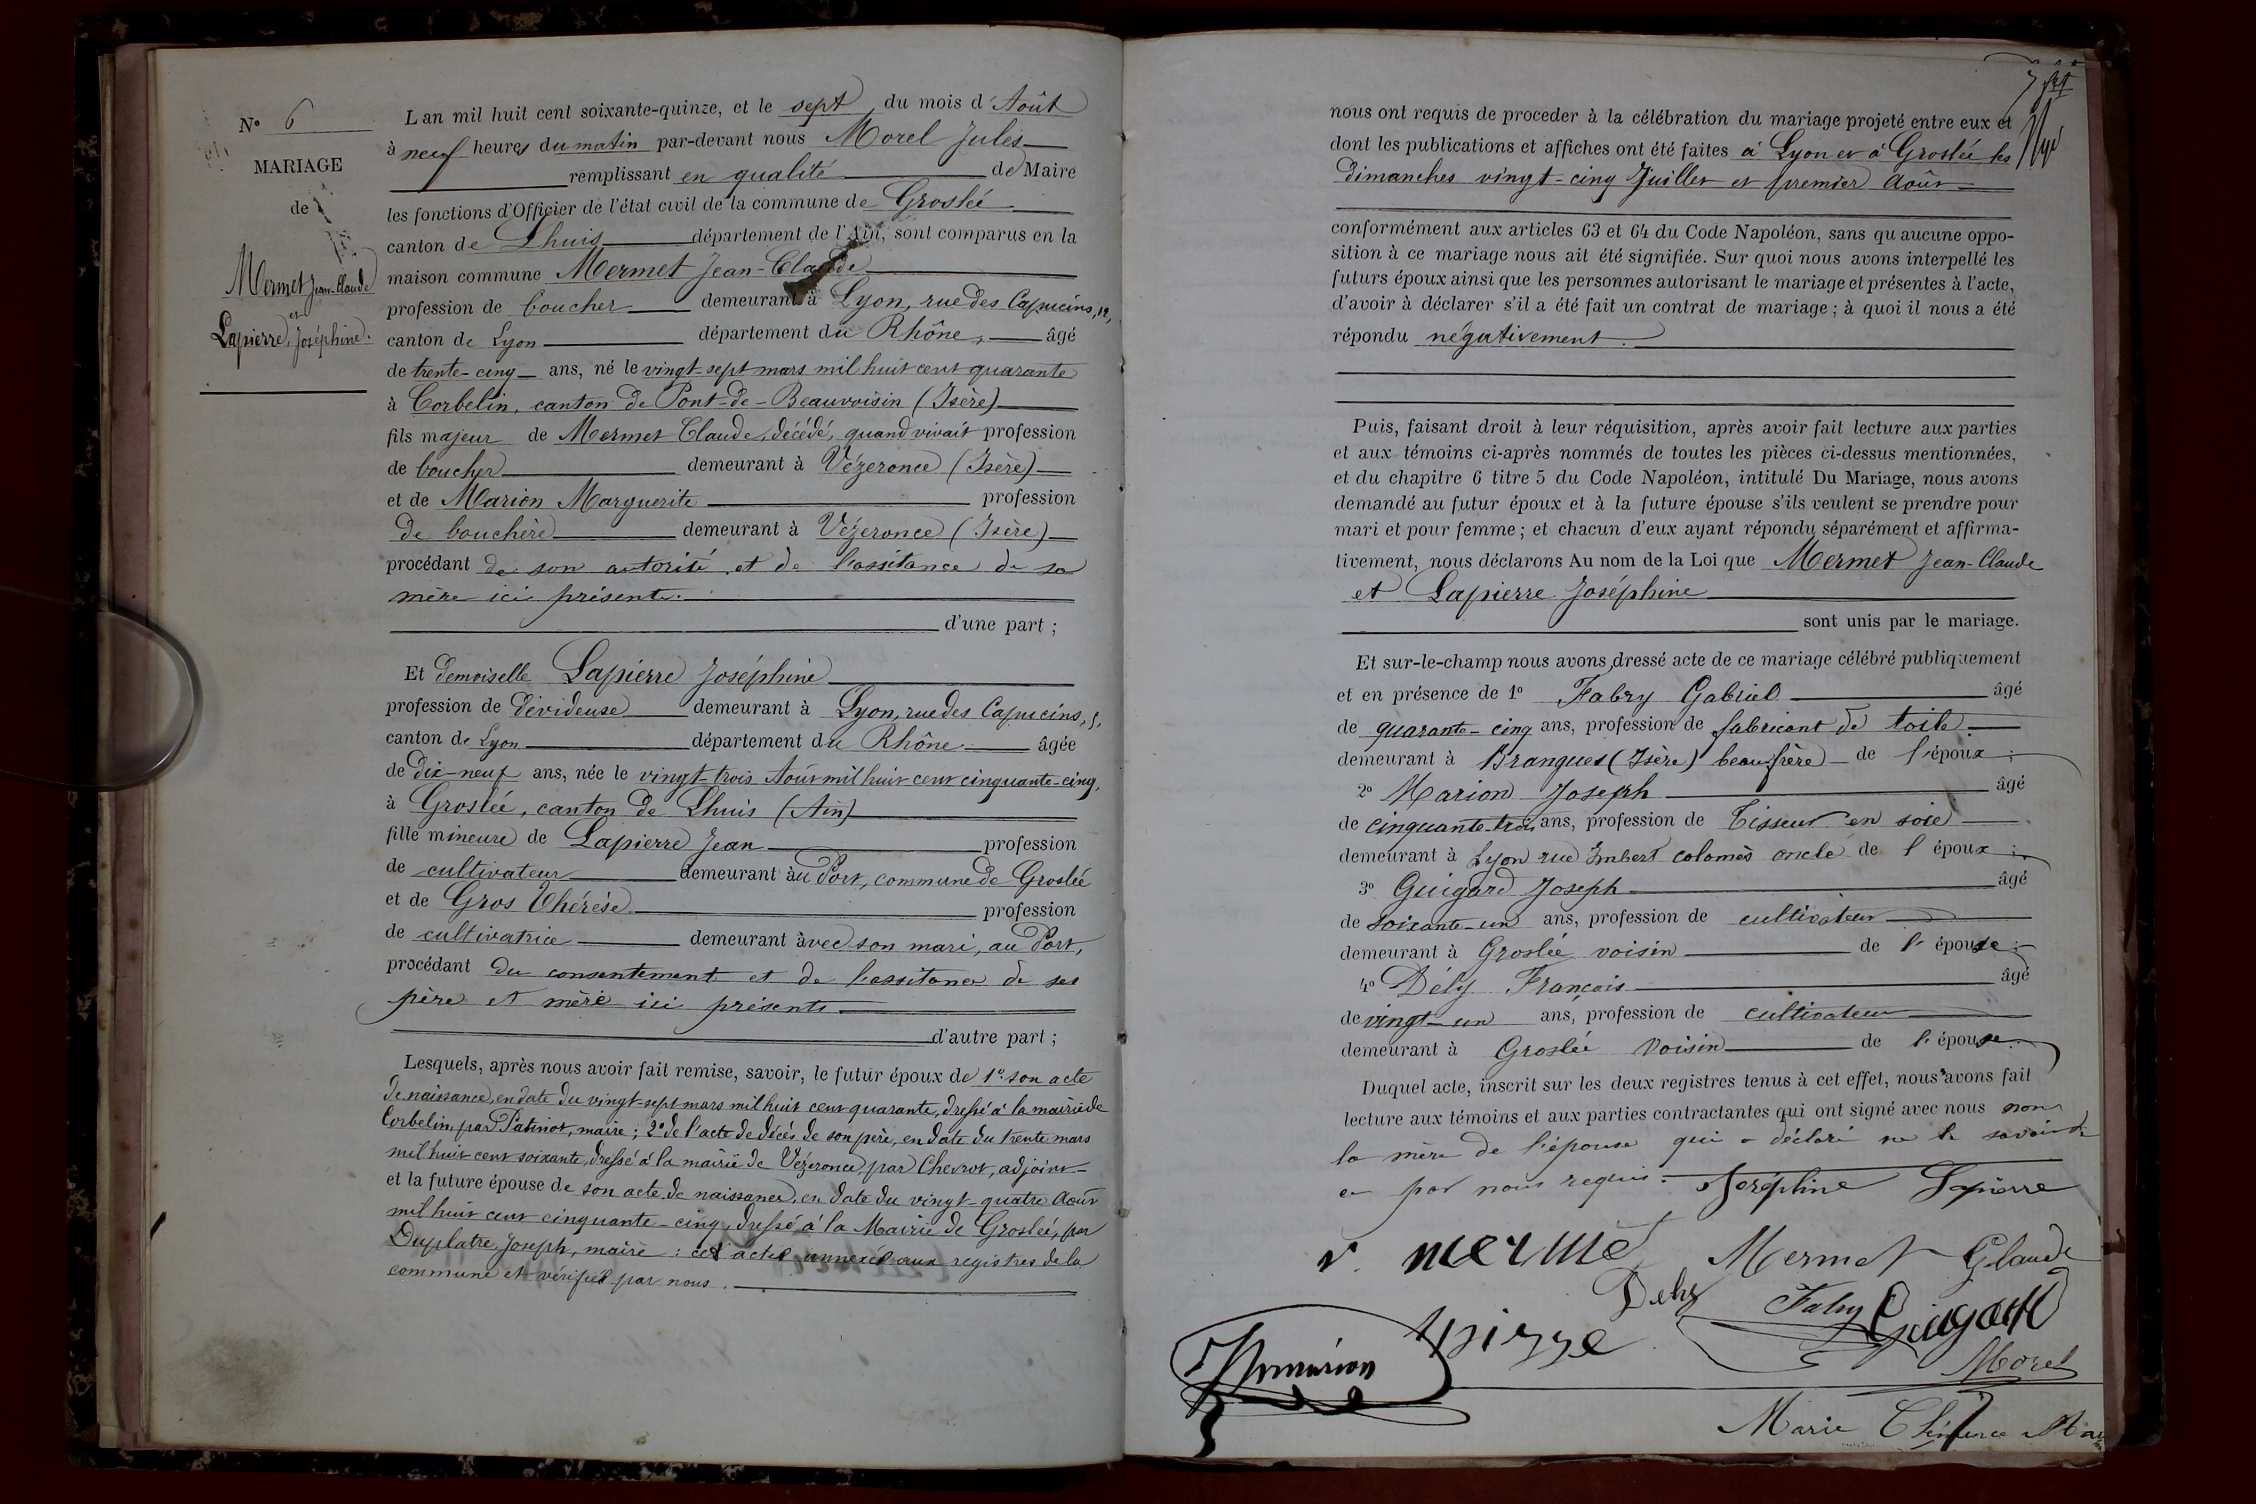 N° 6
MARIAGE
de
Mermet Jean-Claude
et
Lapierre, Joséphine.
L an mil huit cent soixante-quinze, et le sept du mois d'Août
à neuf heures du matin par-devant nous Morel Jules
remplissant en qualité de Maire
les fonctions d'Officier de l'état civil de la commune de Groslée
canton de Lhuis département de l'Ain, sont comparus en la
maison commune Mermet Jean-Claude
profession de boucher demeurant à Lyon, rue des Capucins, 12,
canton de Lyon département du Rhône, âgé
de trente-cinq ans, né le vingt-sept mars mil huit cent quarante
à Corbelin, canton de Pont-de-Beauvoisin (Isère)
fils majeur de Mermet Claude, décédé, quand vivait profession
de boucher demeurant à Vézeronce (Isère)
et de Marion Marguerite profession
de bouchère demeurant à Vézeronce (Isère)
procédant de son autorité et de l'assitance de sa
mère ici présente.
d'une part ;
Et demoiselle Lapierre Joséphine
profession de dévideuse demeurant à Lyon, rue des Capucins, 5,
canton de Lyon département du Rhône âgée
de dix-neuf ans, née le vingt-trois Août mil huit cent cinquante-cinq,
à Groslée, canton de Lhuis (Ain)
fille mineure de Lapierre Jean profession
de cultivateur demeurant au Port, commune de Groslée
et de Gros Thérèse profession
de cultivatrice demeurant avec son mari, au Port,
procédant du consentement et de l'assitance de ses
père et mère ici présents
d'autre part ;
Lesquels, après nous avoir fait remise, savoir, le futur époux de 1° son acte
de naissance, en date du vingt-sept mars mil huit cent quarante, dressé à la mairie de
Corbelin, par Patinot, maire ; 2° de l'acte de décès de son père, en date du trente mars
mil huit cent soixante, dressé à la mairie de Vézeronce, par Chevrot, adjoint
et la future épouse de son acte de naissance, en date du vingt-quatre Août
mil huit cent cinquante-cinq, dressé à la Mairie de Groslée, par
Duplatre, Joseph, maire : ces actes annexés aux registres de la
commune et vérifiés par nous.
nous ont requis de proceder à la célébration du mariage projeté entre eux et
dont les publications et affiches ont été faites à Lyon et à Groslée les
dimanches vingt-cinq Juillet et premier Août
conformément aux articles 63 et 64 du Code Napoléon, sans qu aucune oppo-
sition à ce mariage nous ait été signifiée. Sur quoi nous avons interpellé les
futurs époux ainsi que les personnes autorisant le mariage et présentes à l'acte,
d'avoir à déclarer s'il a été fait un contrat de mariage ; à quoi il nous a été
répondu négativement.
Puis, faisant droit à leur réquisition, après avoir fait lecture aux parties
et aux témoins ci-après nommés de toutes les pièces ci-dessus mentionnées,
et du chapitre 6 titre 5 du Code Napoléon, intitulé Du Mariage, nous avons
demandé au futur époux et à la future épouse s'ils veulent se prendre pour
mari et pour femme ; et chacun d'eux ayant répondu séparément et affirma-
tivement, nous déclarons Au nom de la Loi que Mermet Jean-Claude
et Lapierre Joséphine
sont unis par le mariage.
Et sur-le-champ nous avons dressé acte de ce mariage célébré publiquement
et en présence de 1° Fabry Gabriel âgé
de quarante-cinq ans, profession de fabricant de toile
demeurant à Brangues (Isère) beau-frère de l'époux ;
2° Marion Joseph âgé
de cinquante-trois ans, profession de Tisseur en soie
demeurant à Lyon rue Imbert colomès oncle de l'époux ;
3° Guigard Joseph âgé
de soixante-un ans, profession de cultivateur
demeurant à Groslée voisin de l'épouse ;
4° Dély François âgé
de vingt-un ans, profession de cultivateur
demeurant à Groslée voisin de l'épouse.
Duquel acte, inscrit sur les deux registres tenus à cet effet, nous avons fait
lecture aux témoins et aux parties contractantes qui ont signé avec nous non
la mère de l'épouse qui a déclaré ne le savoir de
ce par nous requis. Joséphine Lapierre
v. mermet Mermet Glaude
Dely Fabry Guigard
Morel
Marie Clémence